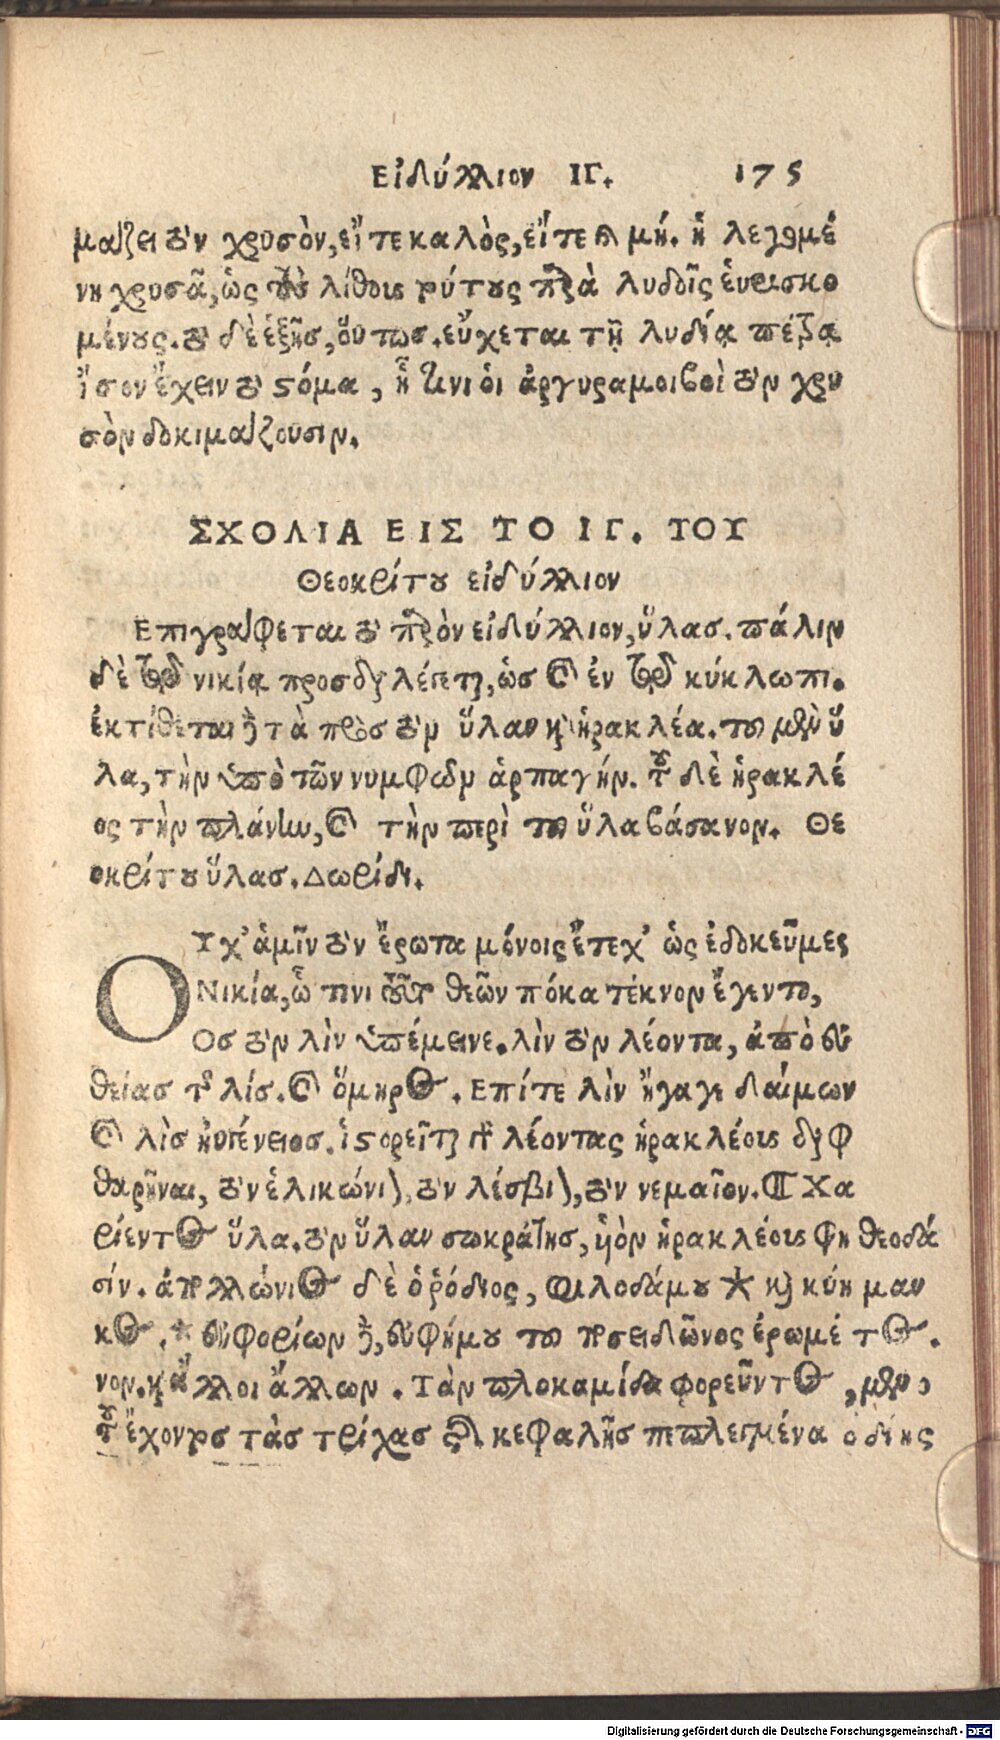 Εἰδύλλιον ΙΓ. 175
μάζει τὸν χρυσὸν, εἴτε καλὸς, εἴτε καὶ μή. ἡ λεγομέ
νη χρυσᾶ, ὡς τοὺς λίθους τούτους παρὰ λυδοῖς εὑρισκο
μένους. τὸ δὲ ἑξῆς, οὕτως. εὔχεται τῇ λυδίᾳ πέτρᾳ
ἴσον ἔχειν τὸ στόμα, ᾗ τινι οἱ ἀργυραμοιβοὶ τὸν χρυ
σὸν δοκιμάζουσιν.
ΣΧΟΛΙΑ ΕΙΣ ΤΟ ΙΓ. ΤΟΥ
Θεοκρίτου εἰδύλλιον
Επιγράφεται τὸ παρὸν εἰδύλλιον, ὕλας. πάλιν
δὲ τῷ νικίᾳ προσδιαλέγεται, ὡς καὶ ἐν τῷ κύκλωπι.
ἐκτίθεται δὲ τὰ πρὸς τὸν ὕλαν καὶ ἡρακλέα. τοῦ μὲν ὕ
λα, τὴν ὑπὸ τῶν νυμφῶν ἁρπαγήν. τοῦ δὲ ἡρακλέ
ος τὴν πλάνην, καὶ τὴν περὶ τοῦ ὕλα βάσανον. Θε
οκρίτου ὕλας. Δωρίδι.
ΟΥχ' ἁμῖν τὸν ἔρωτα μόνοις ἔτεχ' ὡς ἐδοκεῦμες
Νικία, ᾧ τινι τοῦτο θεῶν πόκα τέκνον ἔγεντο,
Ος τὸν λὶν ὑπέμεινε. λὶν τὸν λέοντα, ἀπὸ εὐ
θείας τοῦ λίς. καὶ ὅμηρος. Επί τε λὶν ἤγαγε δαίμων
καὶ λὶς ἠυγένειος. ἱστορεῖται τρεῖς λέοντας ἡρακλέους διαφ
θαρῆναι, τὸν ἑλικώνιον, τὸν λέσβιον, τὸν νεμαῖον. ¶ Χα
ρίεντος ὕλα. τὸν ὕλαν σωκράτης, υἱὸν ἡρακλέους φη θεοδά
σίν. ἀπολλώνιος δὲ ὁ ῥόδιος, φιλοδάμου * καὶ κύη μαν
κος. * εὐφορίων δὲ, εὐφήμου τοῦ ποσειδῶνος ἐρωμέ τος.
νον. καὶ ἄλλοι ἄλλων. Τὰν πλοκαμίδα φορεῦντος, μὲν,
τοῦ ἔχοντος τὰς τρίχας τῆς κεφαλῆς πεπλεγμένα ὁδίης